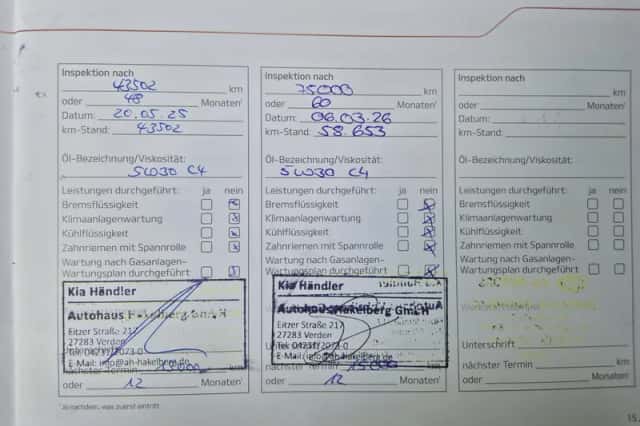 Inspektion nach
43502 km
oder 48 Monaten¹
Datum: 20.05.25
km-Stand: 43502
Öl-Bezeichnung/Viskosität:
5W30 C4
Leistungen durchgeführt: ja nein
Bremsflüssigkeit
Klimaanlagenwartung
Kühlflüssigkeit
Zahnriemen mit Spannrolle
Wartung nach Gasanlagen-
Wartungsplan durchgeführt
Kia Händler
Autohaus Hakelberg GmbH
Eitzer Straße 217
27283 Verden
Tel. 04231/2073-0
E-Mail: info@ah-hakelberg.de
nächster Termin 15000 km
oder 12 Monaten¹
Inspektion nach
75000 km
oder 60 Monaten¹
Datum: 06.03.26
km-Stand: 58.653
Öl-Bezeichnung/Viskosität:
5W30 C4
Leistungen durchgeführt: ja nein
Bremsflüssigkeit
Klimaanlagenwartung
Kühlflüssigkeit
Zahnriemen mit Spannrolle
Wartung nach Gasanlagen-
Wartungsplan durchgeführt
Kia Händler
Autohaus Hakelberg GmbH
Eitzer Straße 217
27283 Verden
Tel. 04231/2073-0
E-Mail: info@ah-hakelberg.de
nächster Termin 15000 km
oder 12 Monaten¹
Inspektion nach
km
oder Monaten¹
Datum:
km-Stand:
Öl-Bezeichnung/Viskosität:
Leistungen durchgeführt: ja nein
Bremsflüssigkeit
Klimaanlagenwartung
Kühlflüssigkeit
Zahnriemen mit Spannrolle
Wartung nach Gasanlagen-
Wartungsplan durchgeführt
Unterschrift
nächster Termin km
oder Monaten¹
¹ Je nachdem, was zuerst eintritt
15